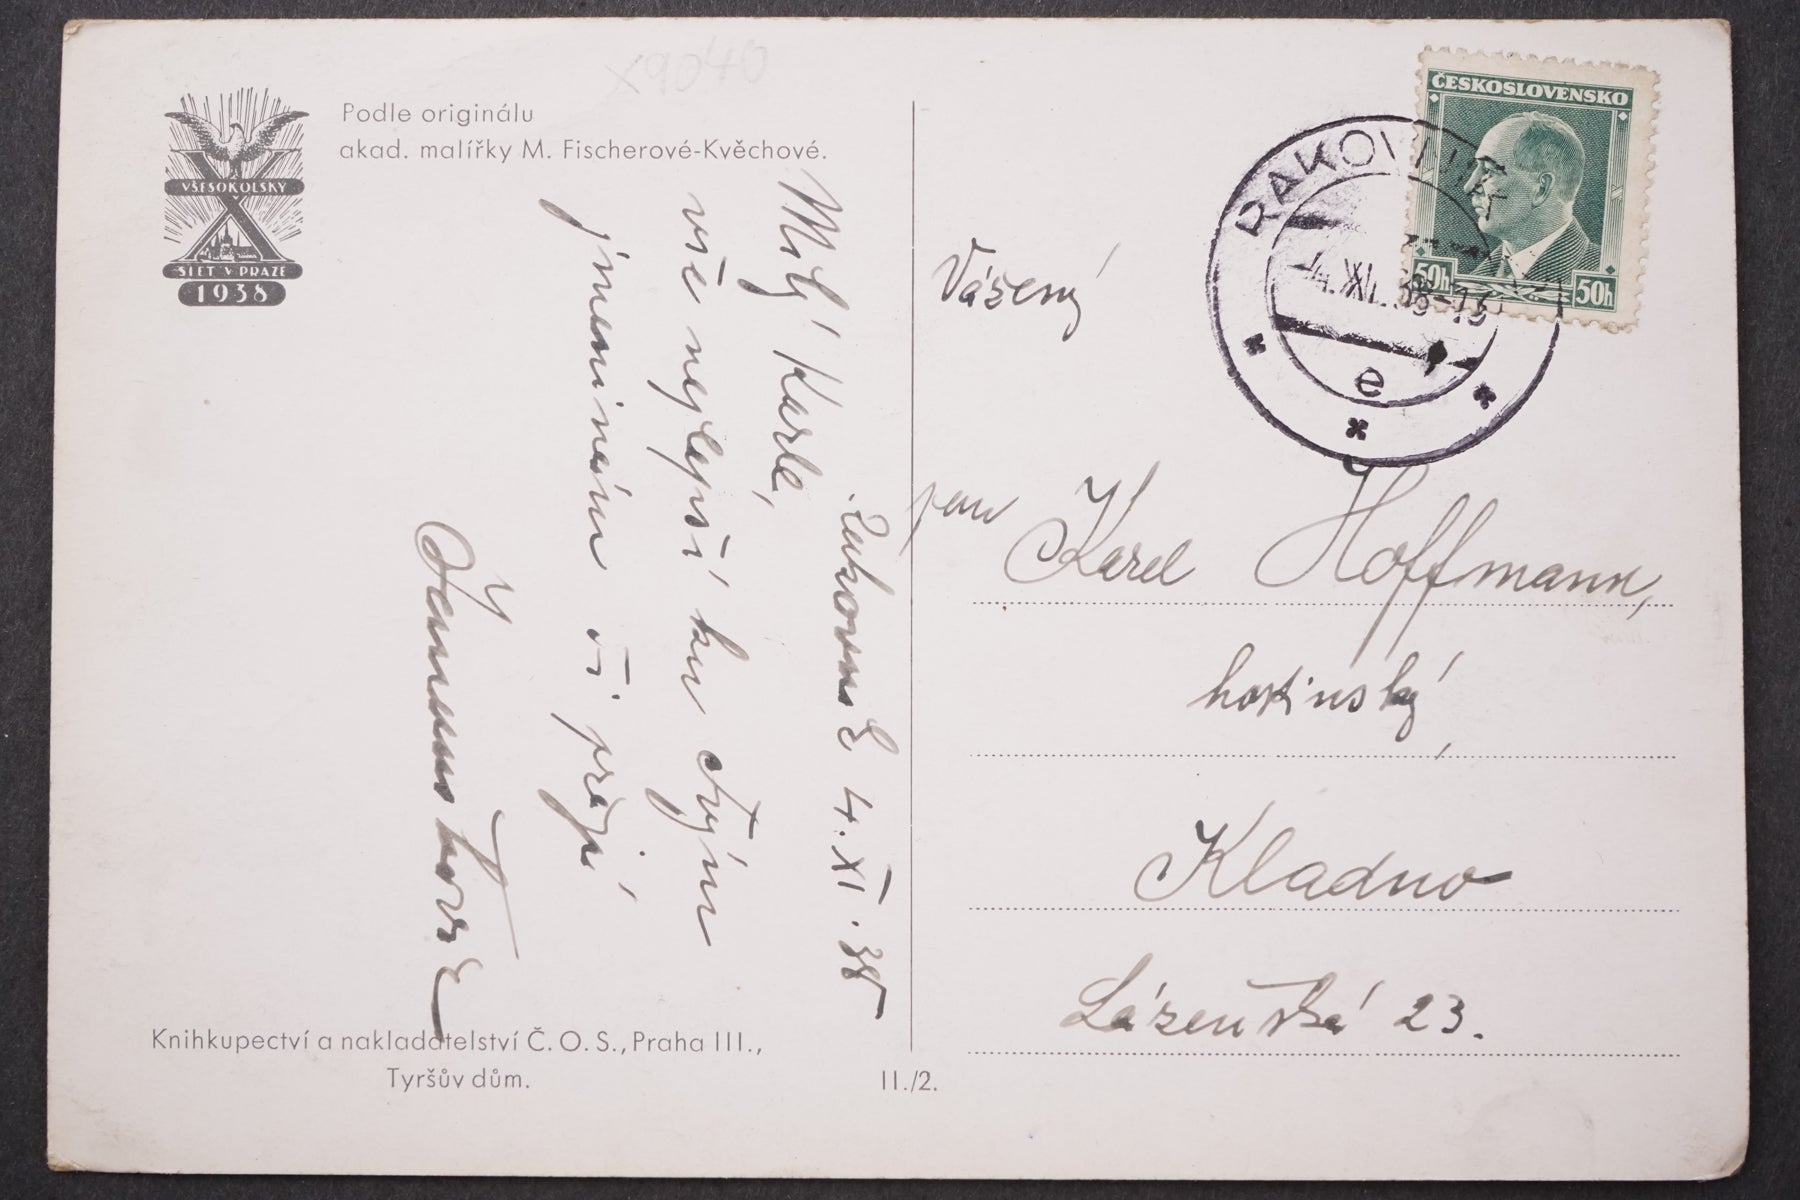 X9040
Podle originálu
akad. malířky M. Fischerové-Kvěchové.
VŠESOKOLSKÝ
X
SLET V PRAZE
1938
4. XI. 38
Milý Karle,
vše nejlepší ku Tvým
jmeninám Ti přejí
Knihkupectví a nakladatelství Č. O. S., Praha III.,
Tyršův dům.
II./2.
ČESKOSLOVENSKO
50h
50h
RAKOVNÍK
4. XI. 38-13
e
Vážený
pan
Karel Hoffmann,
hostinský,
Kladno
Lázeňská 23.